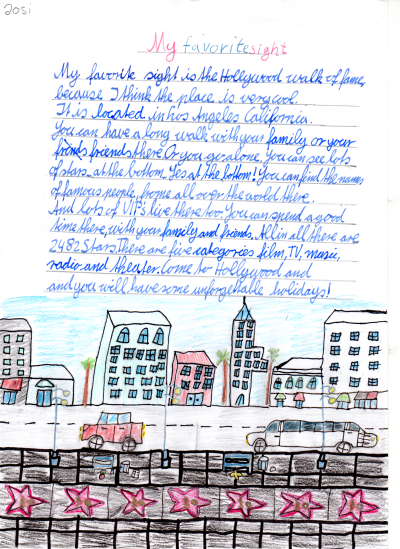 Josi
My favorite sight
My favorite sight is the Hollywood walk of fame,
because I think the place is very cool.
It is located in Los Angeles California.
You can have a long walk with your family or your
friends there. Or you go alone, you can see lots
of stars at the bottom. Yes at the bottom! You can find the names
of famous people, from all over the world there.
And lots of VIPs live there too. You can spend a good
time there, with your family and friends. All in all there are
2482 Stars. There are five categories film, TV, music,
radio and theater. Come to Hollywood and
and you will have some unforgettable holidays!